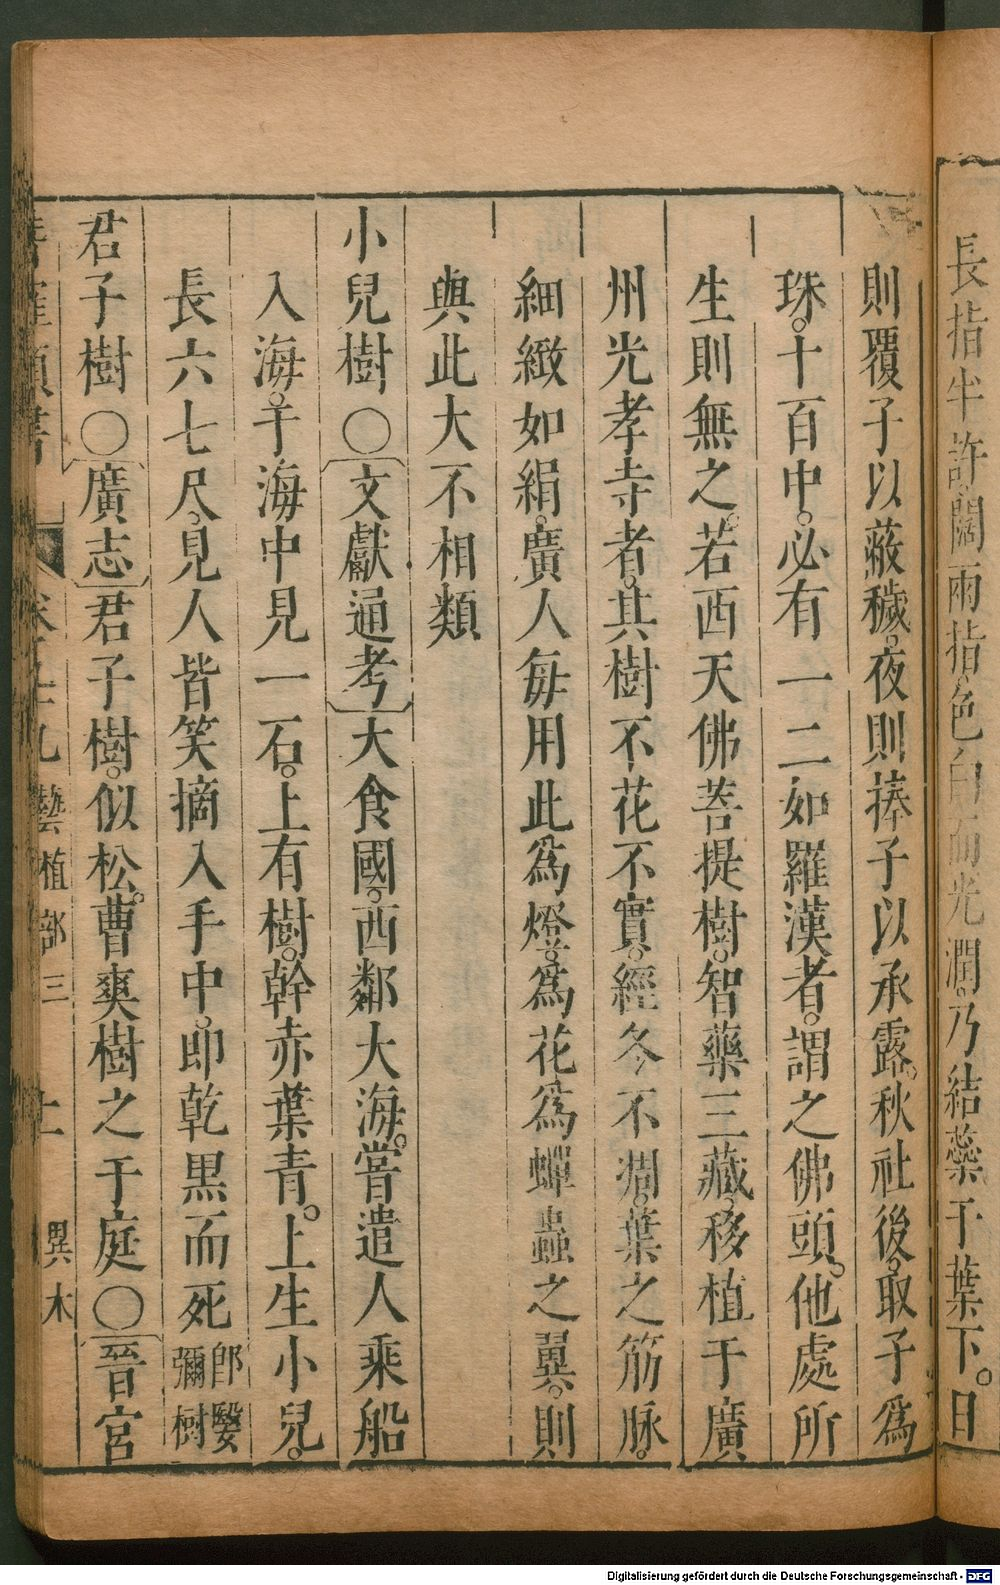 長指半許闊兩指色白而光潤。乃結蘂于葉下。日
則覆子以蔽穢。夜則捧子以承露。秋社後。取子為
珠。十百中。必有一二如羅漢者。謂之佛頭。他處所
生則無之。若西天佛菩提樹。智藥三藏。移植于廣
州光孝寺者。其樹不花不實。經冬不凋。葉之筋脉。
細緻如絹。廣人每用此為燈。為花為蟬蟲之翼。則
與此大不相類
小兒樹〇〔文獻通考〕大食國。西鄰大海。嘗遣人乘船
入海。于海中見一石。上有樹。幹赤葉青。上生小兒。
長六七尺。見人皆笑摘入手中。即乾黑而死即毉彌樹
君子樹〇〔廣志〕君子樹。似松。曹爽樹之于庭〇〔晉宮
類書 藝植部三 異木
Digitalisierung gefördert durch die Deutsche Forschungsgemeinschaft - DFG